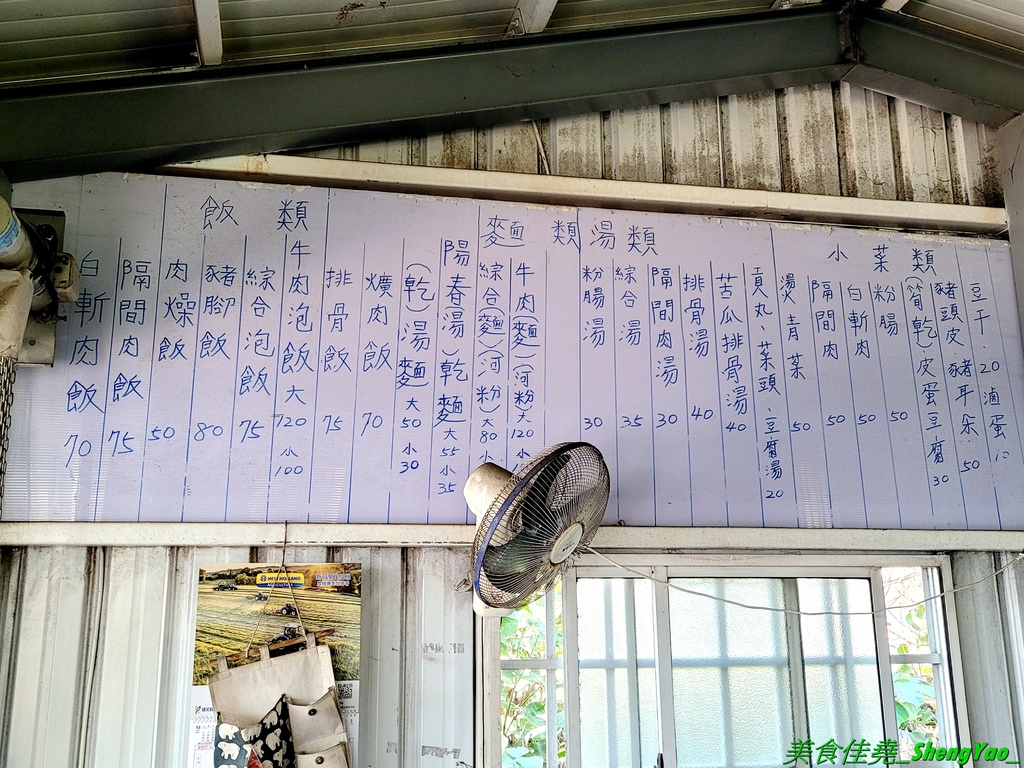 飯類
白斬肉飯 70
隔間肉飯 75
肉燥飯 50
豬腳飯 80
綜合泡飯 75
牛肉泡飯 大120 小100
排骨飯 75
爌肉飯 70
麵類
(乾)湯麵 大50 小30
陽春湯)乾麵 大55 小35
綜合麵)(河粉)大80 小
牛肉麵)(河粉)大120 小
湯類
粉腸湯 30
綜合湯 35
隔間肉湯 30
排骨湯 40
苦瓜排骨湯 40
貢丸、菜頭、豆腐湯 20
小菜類
燙青菜 50
隔間肉 50
白斬肉 50
粉腸 50
(筍乾)皮蛋豆腐 30
豬頭皮 豬耳朵 50
豆干、20 滷蛋 10
NEW HOLLAND
AGRICULTURE
美食佳堯_ShengYao_